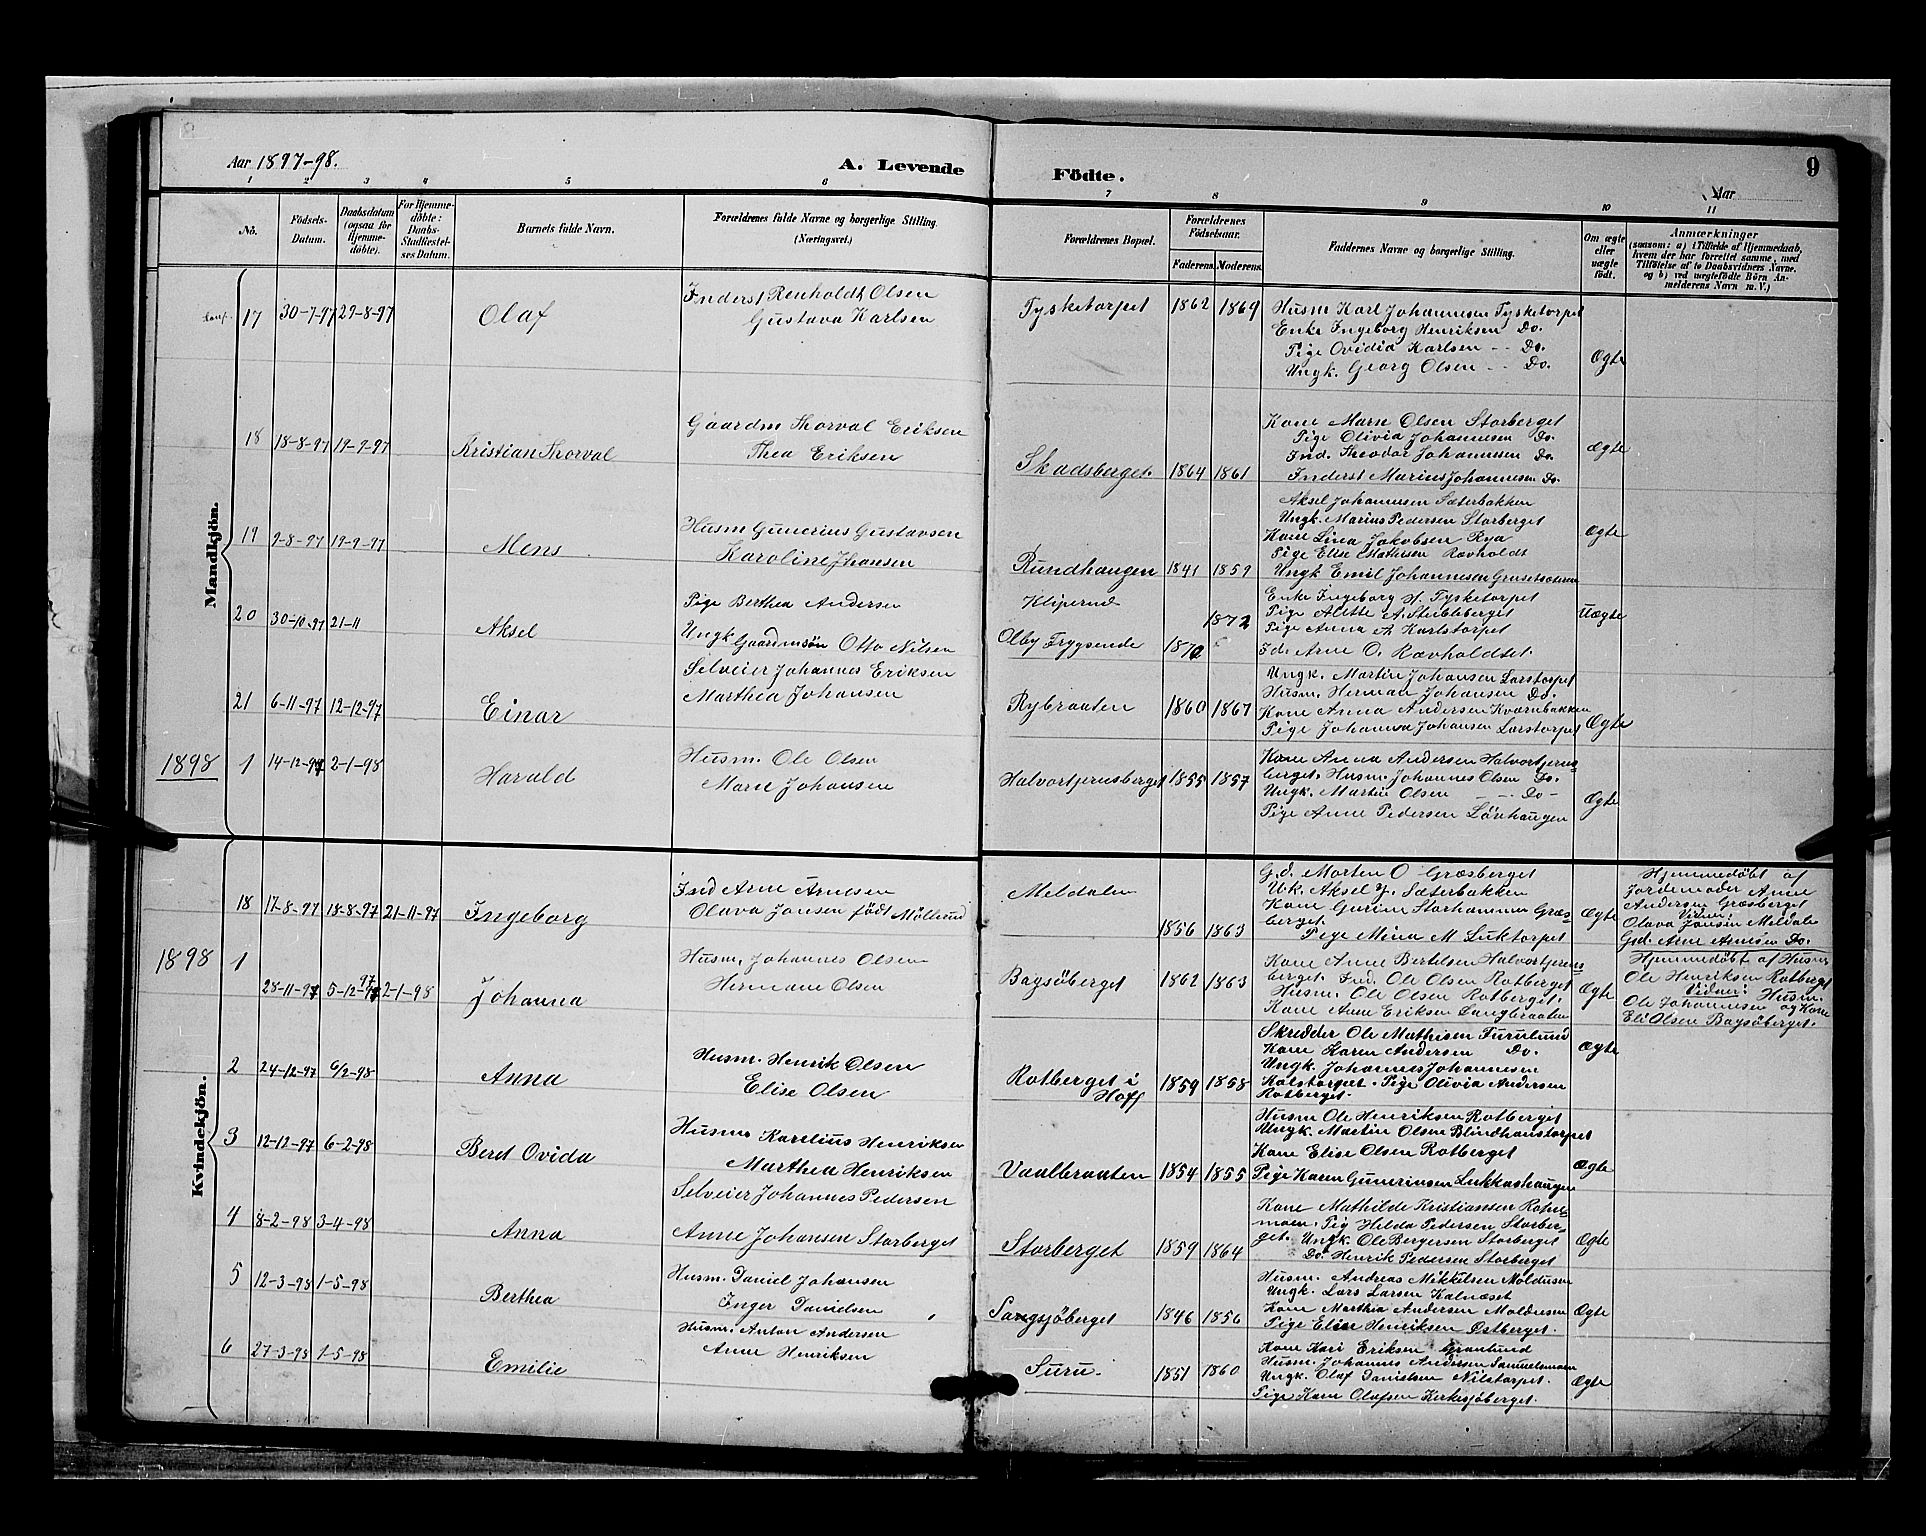 Aar 1897-98.
A. Levende
Födte.
9
Aar
1 2 3 4 5 6 7 8 9 10 11
No.
Födsels-Datum.
Daabsdatum (ogsaa for Hjemme-døbte).
For Hjemme-døbte: Daabs-Stadfæstel-ses Datum.
Barnets fulde Navn.
Forældrenes fulde Navne og borgerlige Stilling.
(Næringsvei.)
Forældrenes Bopæl.
Forældrenes Födselsaar.
Faderens. Moderens.
Faddernes Navne og borgerlige Stilling.
Om ægte eller uægte födt.
Anmærkninger
(saasom: a) i Tilfælde af Hjemmedaab, hvem der har forrettet samme, med Tilföielse af to Daabsvidners Navne, og b) ved uægtefödte Börn An-melderens Navn m. V.)
Mandkjön.
17 30-7-97 29-8-97 Olaf
Inderst Renholdt Olsen
Gustava Karlsen
Tysketorpet 1862 1869
Husm Karl Johannesen Tysketorpet
Enke Ingeborg Henriksen Do.
Pige Ovidia Karlsen -- Do.
Ungk. Georg Olsen -- Do.
Ægte
18 18-8-97 19-9-97 Kristian Thorval
Gaardm Thorval Eriksen
Thea Eriksen
Skadsberget. 1864 1861
Kone Marn Olsen Storberget
Pige Olivia Johannesen Do.
Ind. Theodor Johannesen Do.
Inderst Marius Johannesen Do.
Ægte
19 9-8-97 19-9-97 Mens
Husm Gunerius Gustavsen
Karoline Jhansen
Rundhaugen 1841 1859
Aksel Johannesen Sæterbakken
Ungk. Marius Pedersen Storberget
Kone Lina Jakobsen Rya
Pige Elise Mathisen Ravholdt
Ungk Emil Johannesen Grusetsæteren
Ægte
20 30-10-97 21-11 Aksel
Pige Berthea Andersen
Ungk Gaardmsön Otto Nilsen
Klipernd 1872
Olby Trygsende 1870
Enke Ingeborg H. Tysketorpet
Pige Alette A. Stubleberget
Pige Anna A. Karlstorpet
Id. Arne O. Ravholdtet.
Uægte
21 6-11-97 12-12-97 Einar
Selveier Johannes Eriksen
Marthea Johansen
Rybraaten 1860 1867
Ungk. Martin Johansen Larstorpet
Husm. Herman Johansen Do.
Kone Anna Andersen Kværnbakken
Pige Johanna Johansen Larstorpet
Ægte
1898 1 14-12-97 2-1-98 Harald
Husm. Ole Olsen
Marn Johansen
Halvortjernsberget 1855 1857
Kone Anna Andersen Halvortjerns=
berget. Husm. Johannes Olsen Do.
Ungk. Martin Olsen -- Do -
Pige Anne Pedersen Lövhaugen
Ægte
Kvindekjön.
18 17-8-97 18-8-97 21-11-97 Ingeborg
Ind Arne Arnesen
Olava Jansen födt Möllerud
Meldalen
1856 1863
G.d. Morten O Græsberget
U.k. Aksel J. Sæterbakken
Kone Gurine Storhammer Græs=
berget.
Pige Mina M Luktorpet
Ægte
Hjemmedöbt af
Jordemoder Anne
Andersen Græsberget
Vidner:
Olava Jansen Meldale
Grd. Arne Arnesen Do.
1898 1 28-11-97 5-12-97 2-1-98 Johanna
Husm. Johannes Olsen
Hermane Olsen
Bagsöberget 1862 1863
Kone Anne Bertelsen Halvortjerns=
berget. Ind. Ole Olsen Rotberget
Husm. Ole Olsen Rotberget.
Kone Anne Eriksen Langbraaten
Ægte
Hjemmedöbt af Husm
Ole Henriksen Rotberget
Vidner: Husm.
Ole Johannesen og Kone
Eli Olsen Bagsöberget.
2 24-12-97 6/2-98 Anna
Husm. Henrik Olsen
Elise Olsen
Rotberget i
Hoff
1859 1858
Skredder Ole Mathisen Furulund
Kone Karen Andersen Do.
Ungk. Johannes Johannesen
Kolstorpet. Pige Olivia Andersen
Rotberget.
Ægte
3 12-12-97 6-2-98 Beret Ovida
Husm Karelius Henriksen
Marthea Henriksen
Vaalbraaten 1854 1855
Husm Ole Henriksen Rotberget
Ungk. Martin Olsen Blindhanstorpet
Kone Elise Olsen Rotberget
Pige Karen Gunerinsen Lukkashaugen
Ægte
4 8-2-98 3-4-98 Anna
Selveier Johannes Pedersen
Anne Johansen Storberget
Storberget 1859 1864
Kone Mathilde Kristiansen Roter=
moen. Pig Hilda Pedersen Storber=
get. Ungk. Ole Bergersen Storberget
Do. Henrik Pedersen Storberget
Ægte
5 12-3-98 1-5-98 Berthea
Husm. Daniel Johansen
Inger Danielsen
Sangsjöberget 1846 1856
Husm. Andreas Mikkelsen Moldusen
Ungk. Lars Larsen Kalnæset
Kone Marthia Andersen Moldusen
Pige Elise Henriksen Östberget.
Ægte
6 27-3-98 1-5-98 Emilie
Husm. Anton Andersen
Anne Henriksen
Suru. 1851 1860
Kone Kari Eriksen Granlund
Husm. Johannes Andersen Samuelsmoen
Ungk. Olaf Danielsen Nilstorpet.
Pige Karn Olafsen Kirkesjöberget.
Ægte